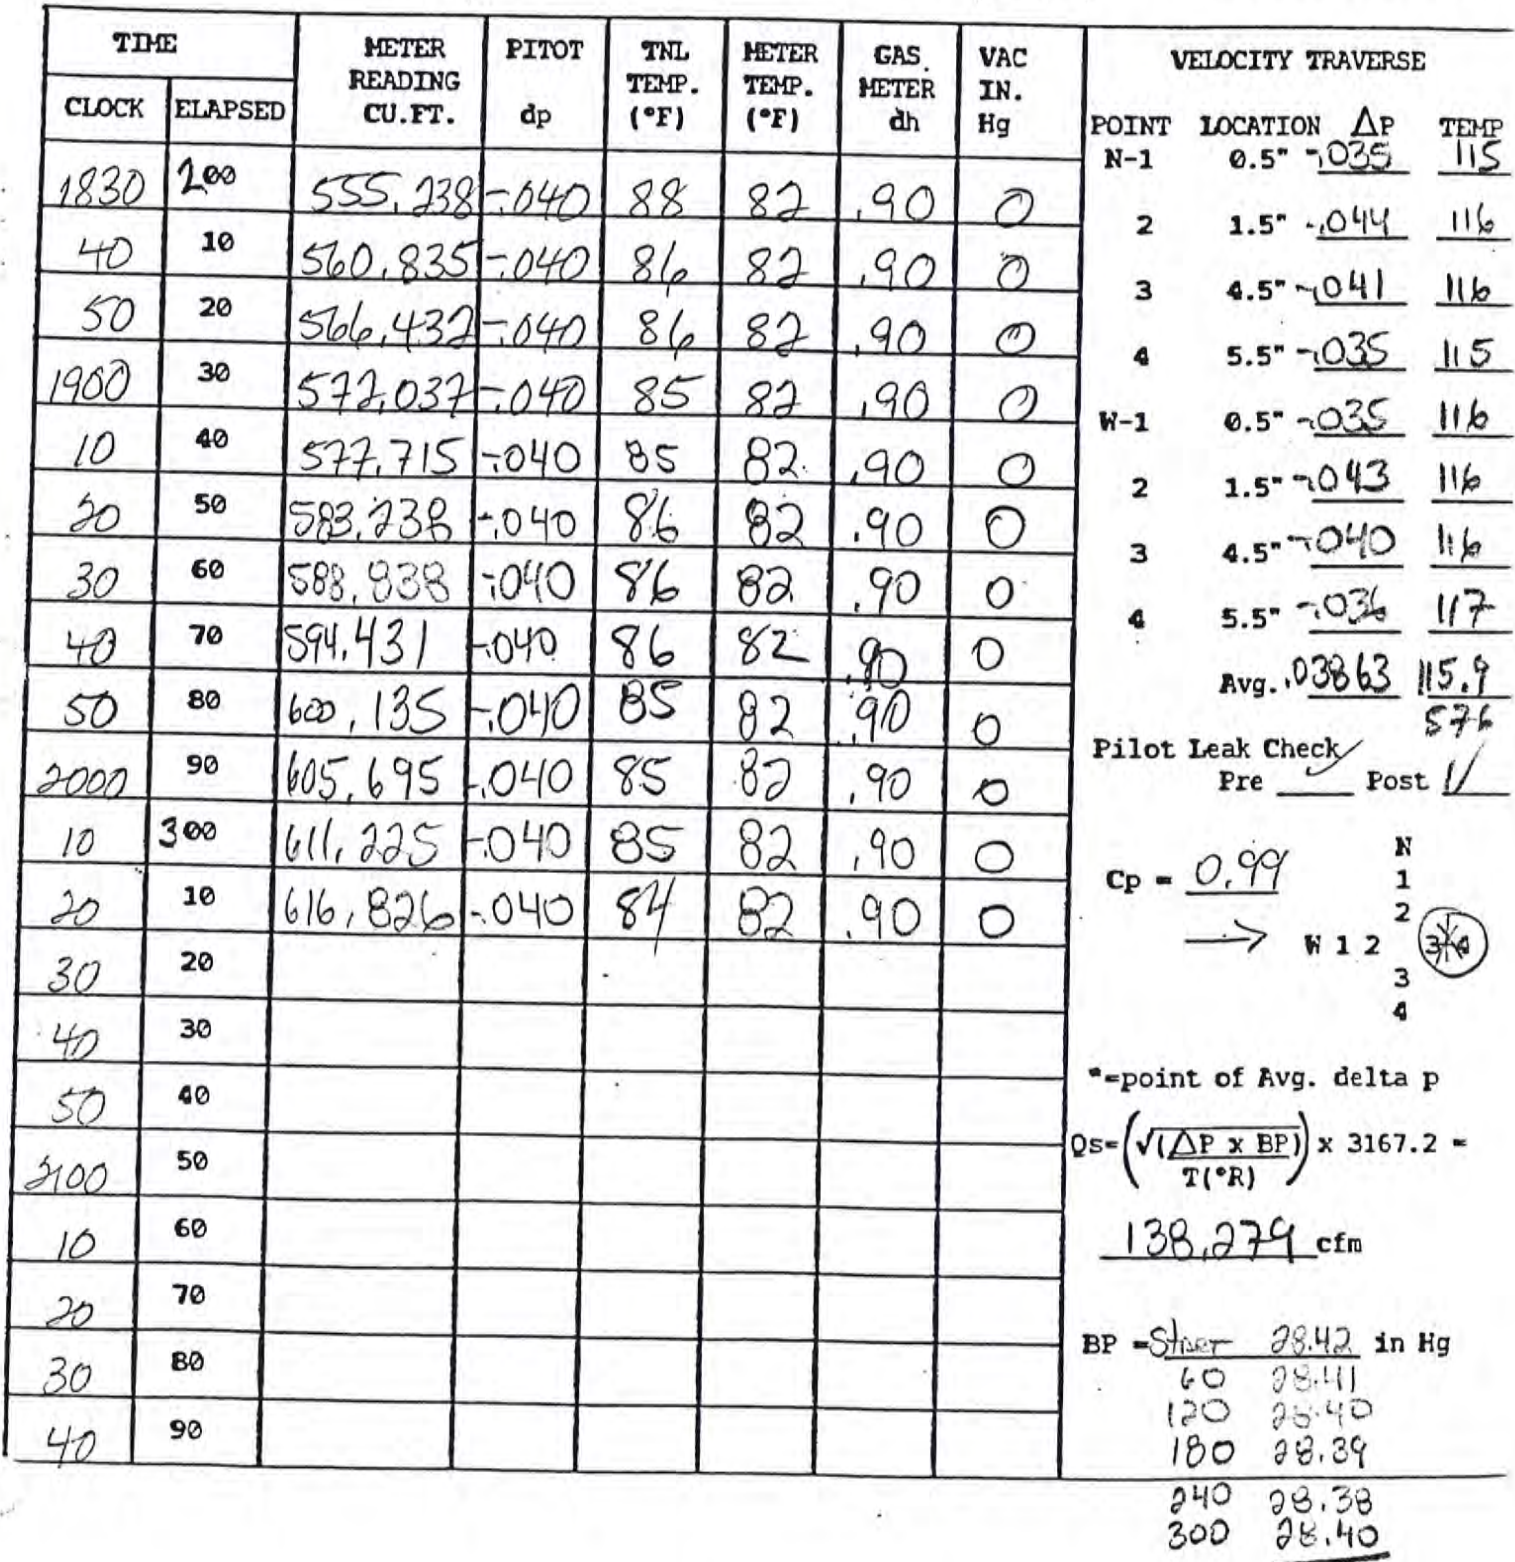 TIME METER READING CU.FT. PITOT dp TNL TEMP. (°F) METER TEMP. (°F) GAS METER dh VAC IN. Hg
CLOCK ELAPSED
1830 200 555.238 -.040 88 82 .90 0
40 10 560.835 -.040 86 82 .90 0
50 20 566.432 -.040 86 82 .90 0
1900 30 572.037 -.040 85 82 .90 0
10 40 577.715 -.040 85 82 .90 0
20 50 583.238 -.040 86 82 .90 0
30 60 588.838 -.040 86 82 .90 0
40 70 594.431 -.040 86 82 .90 0
50 80 600.135 -.040 85 82 .90 0
2000 90 605.695 -.040 85 82 .90 0
10 300 611.225 -.040 85 82 .90 0
20 10 616.826 -.040 84 82 .90 0
30 20
40 30
50 40
2100 50
10 60
20 70
30 80
40 90
VELOCITY TRAVERSE
POINT LOCATION ΔP TEMP
N-1 0.5" -.035 115
2 1.5" -.044 116
3 4.5" -.041 116
4 5.5" -.035 115
W-1 0.5" -.035 116
2 1.5" -.043 116
3 4.5" -.040 116
4 5.5" -.036 117
Avg. .03863 115.9
576
Pilot Leak Check
Pre ✓ Post ✓
Cp = 0.99
N
1
2
→ W 1 2 3 4
3
4
*=point of Avg. delta p
Qs=(√(ΔP x BP)/T(°R)) x 3167.2 =
138.279 cfm
BP = 28.42 in Hg
60 28.41
120 28.40
180 28.39
240 28.38
300 28.40